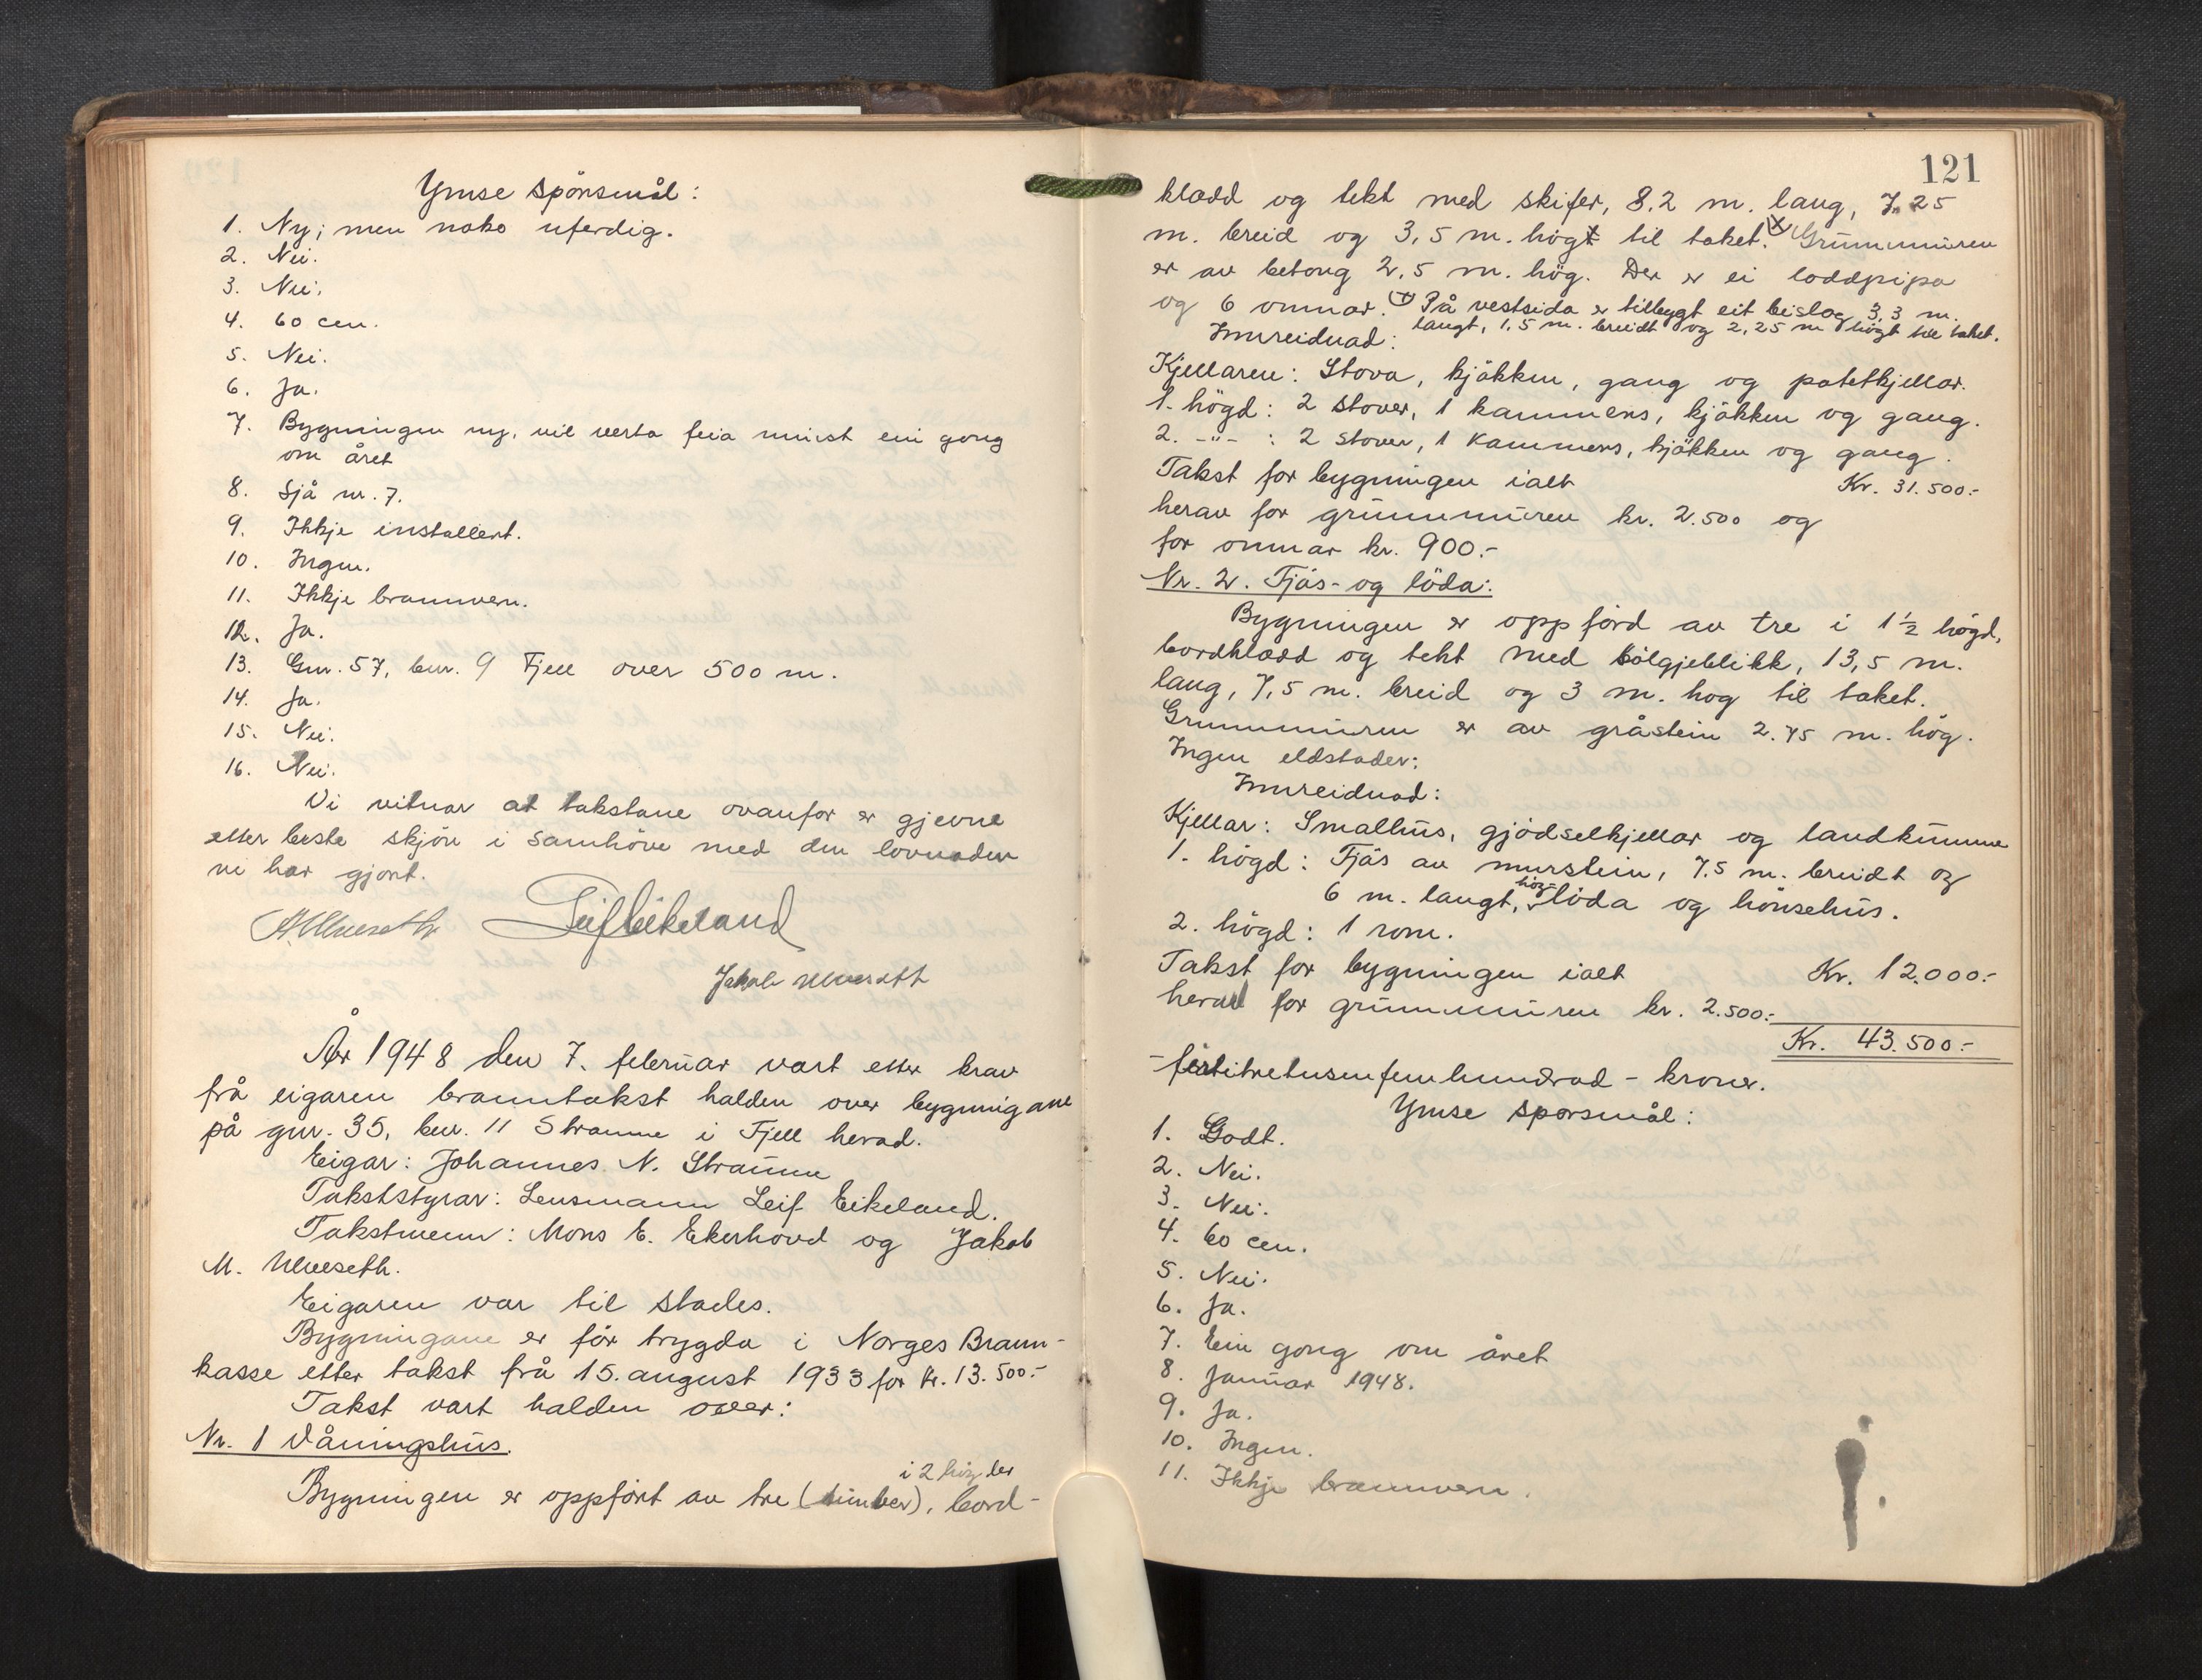 Ymse spörsmål:
1. Ny; men noko uferdig.
2. Nei.
3. Nei.
4. 60 cm.
5. Nei.
6. Ja.
7. Bygningen ny, vil verta feia minst ein gong
om året
8. Sjå nr. 7.
9. Ikkje installert.
10. Ingen.
11. Ikkje brannvern.
12. Ja.
13. Gnr. 57, bnr. 9 Fjell over 500 m.
14. Ja.
15. Nei.
16. Nei.
Vi vitnar at takstane ovanfor er gjevne
etter beste skjön i samhöve med den lovnaden
vi har gjort.
Leif Eikeland
Jakob Ulveseth
År 1948 den 7. februar vart etter krav
frå eigaren branntakst halden over bygnigane
på gnr. 35, bnr. 11 Straume i Fjell herad.
Eigar: Johannes N. Straume
Takststyrar: Lensmann Leif Eikeland.
Takstmenn: Mons E. Ekerhovd og Jakob
M. Ulveseth.
Eigaren var til stades.
Bygningane er för trygda i Norges Brann-
kasse etter takst frå 15. august 1933 for kr. 13.500.-
Takst vart halden over:
Nr. 1 Våningshus.
i 2 högder
Bygningen er oppfört av tre (timber), bord-
121
klædd og tekt med skifer, 8.2 m. lang, 7.25
m. breid og 3,5 m. högt til taket. X Grunnmuren
er av betong 2,5 m. hög. Der er ei loddpipa
og 6 omnar. X) På vestsida er tilbygt eit bislag 3,3 m.
langt, 1,5 m. breidt og 2,25 m högt til taket.
Innreidnad:
Kjellaren: Stova, kjökken, gang og potetkjellar.
1. högd: 2 stover, 1 kammers, kjökken og gang.
2. -"- : 2 stover, 1 kammers, kjökken og gang.
Takst for bygningen ialt Kr. 31.500.-
herav for grunnmuren kr. 2.500 og
for omnar kr. 900.-
Nr. 2. Fjös- og löda:
Bygningen er oppförd av tre i 1 1/2 högd,
bordklædd og tekt med bölgjeblikk, 13,5 m.
lang, 7,5 m. breid og 3 m. hog til taket.
Grunnmuren er av gråstein 2.75 m. hög.
Ingen eldstader:
Innreidnad:
Kjellar: Smalhus, gjödselkjellar og landkumme
1. högd: Fjös av murstein, 7.5 m. breidt og
6 m. langt, höy-löda og hönsehus.
2. högd: 1 rom.
Takst for bygningen ialt Kr. 12.000.-
herav for grunnmuren kr. 2.500.-
Kr. 43.500.-
-förtitretusenfemhundrad - kroner.
Ymse sporsmål:
1. Godt.
2. Nei.
3. Nei.
4. 60 cm.
5. Nei.
6. Ja.
7. Ein gong om året
8. Januar 1948.
9. Ja.
10. Ingen.
11. Ikkje brannvern.